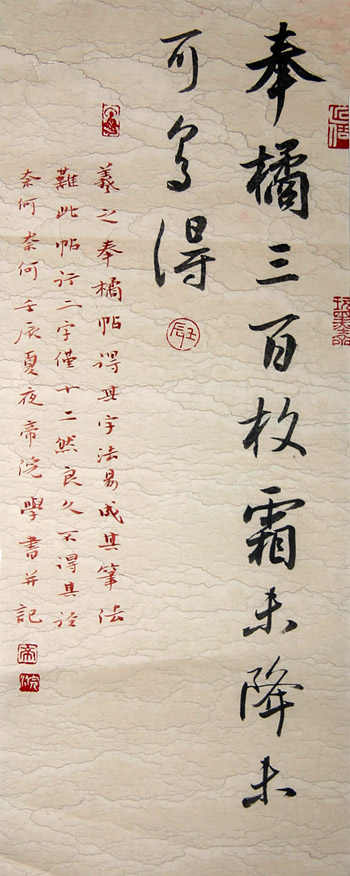 奉橘三百枚霜未降未
可多得
壬辰
羲之奉橘帖得其字法易成其筆法
難此帖行二字僅十二然良久不得其
奈何奈何壬辰夏夜帝浣學書并記
帝
浣